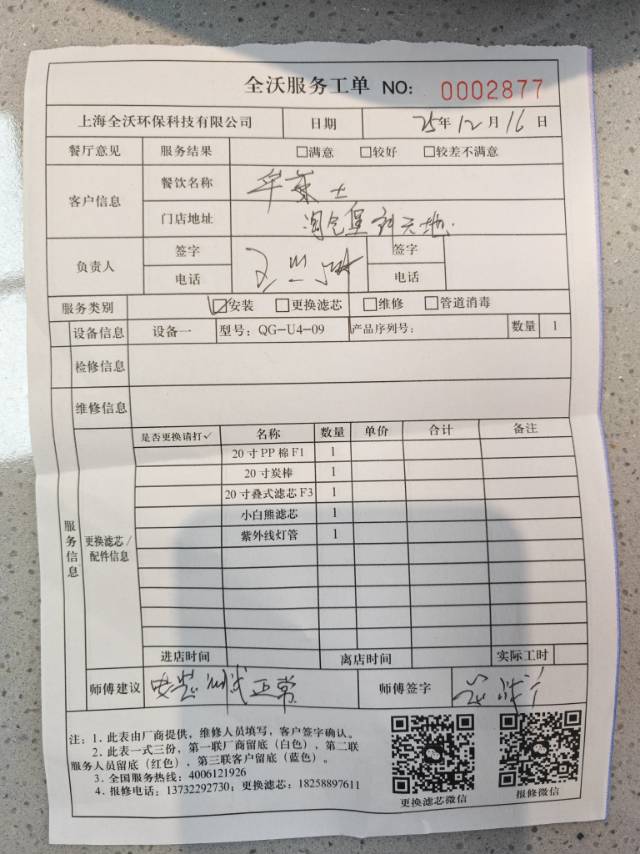 全沃服务工单 NO: 0002877
上海全沃环保科技有限公司 日期 25年12月16日
餐厅意见 服务结果 □满意 □较好 □较差不满意
客户信息 餐饮名称 牟莱士
门店地址
负责人 签字 签字
电话 电话
服务类别 ☑安装 □更换滤芯 □维修 □管道消毒
设备信息 设备一 型号: QG-U4-09 产品序列号: 数量 1
检修信息
维修信息
服务信息
更换滤芯/配件信息
是否更换请打✓ 名称 数量 单价 合计 备注
20寸PP棉F1 1
20寸炭棒 1
20寸叠式滤芯F3 1
小白熊滤芯 1
紫外线灯管 1
进店时间 离店时间 实际工时
师傅建议 安装测试正常 师傅签字
注: 1. 此表由厂商提供, 维修人员填写, 客户签字确认。
2. 此表一式三份, 第一联厂商留底(白色), 第二联
服务人员留底(红色), 第三联客户留底(蓝色)。
3. 全国服务热线: 4006121926
4. 报修电话: 13732292730; 更换滤芯: 18258897611
更换滤芯微信 报修微信